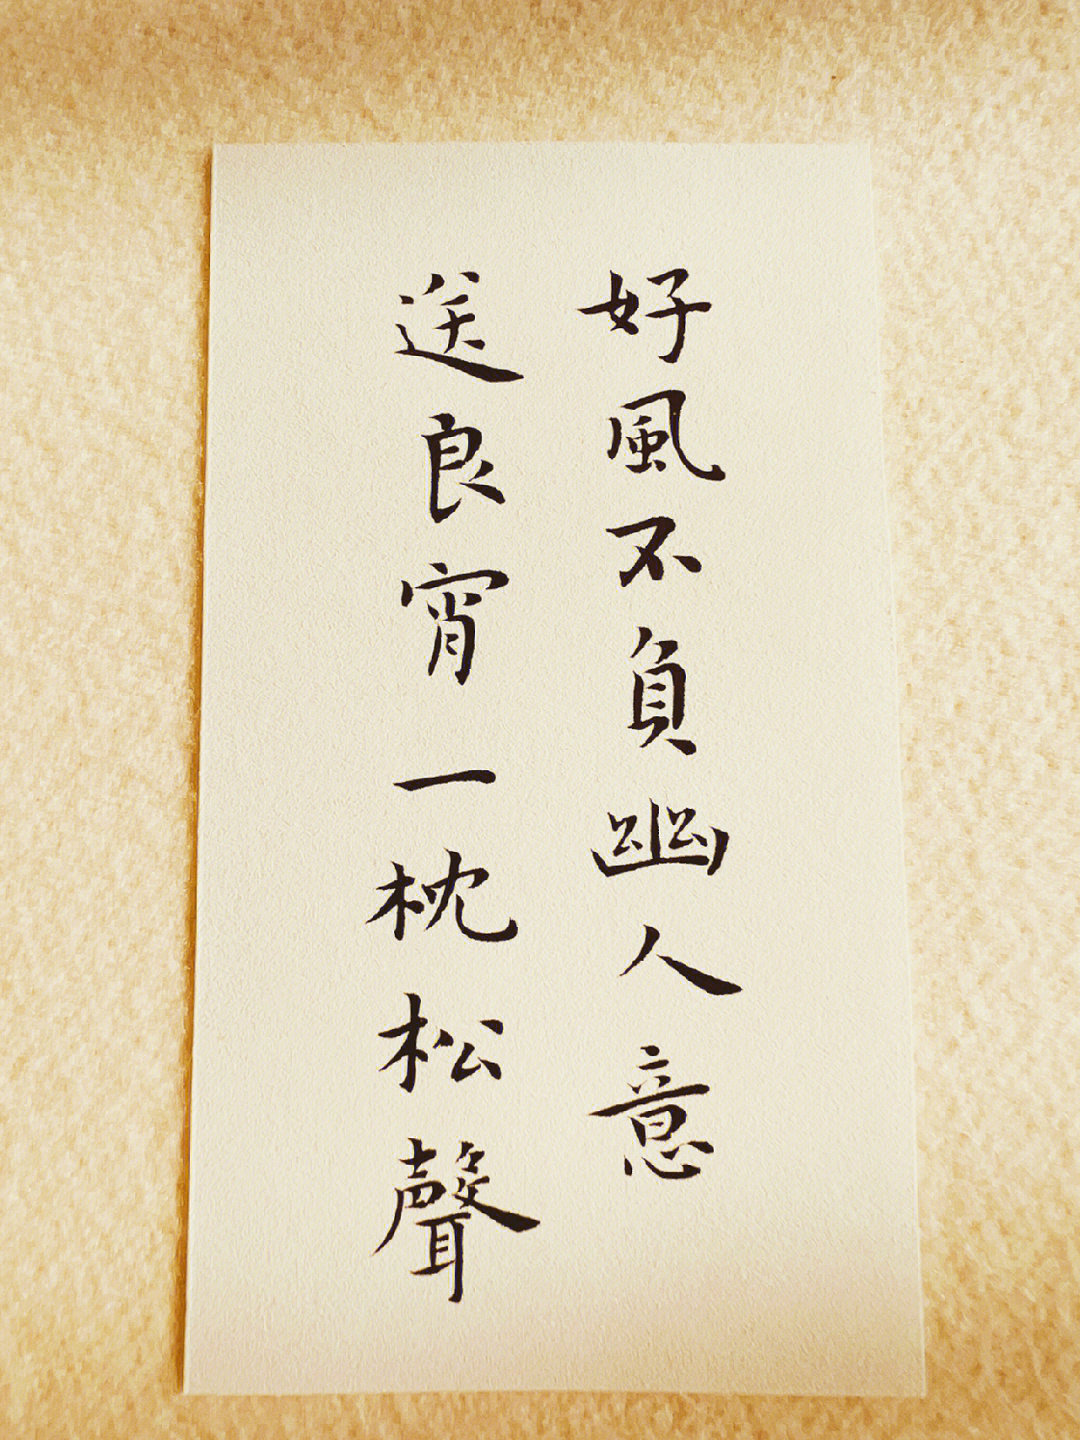 好風不負幽人意
送良宵一枕松聲